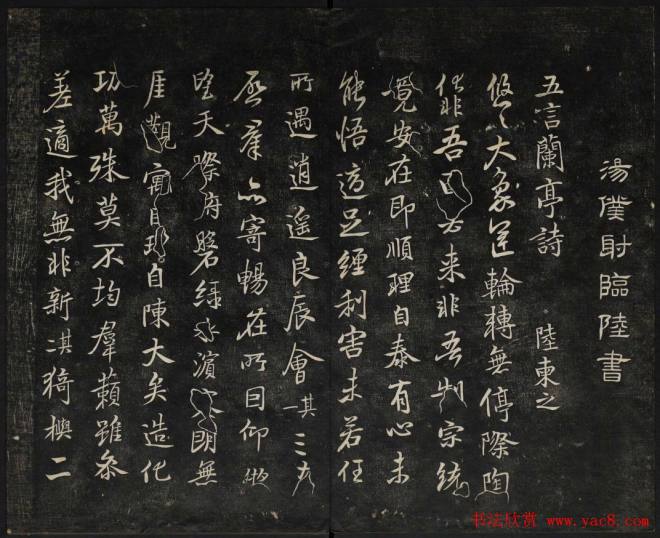 湯僕射臨陸書
五言蘭亭詩 陸柬之
悠悠大象運輪轉無停際陶
化非吾因去來非吾制宗統
竟安在即順理自泰有心未
能悟適足纏利害未若任
所遇逍遙良辰會其一三春
啟羣品寄暢在所因仰
望天際俯磐綠水濱寥朗無
厓觀寓目理自陳大矣造化
功萬殊莫不均羣籟雖參
差適我無非新其二猗與二
书法欣赏 www.yac8.com